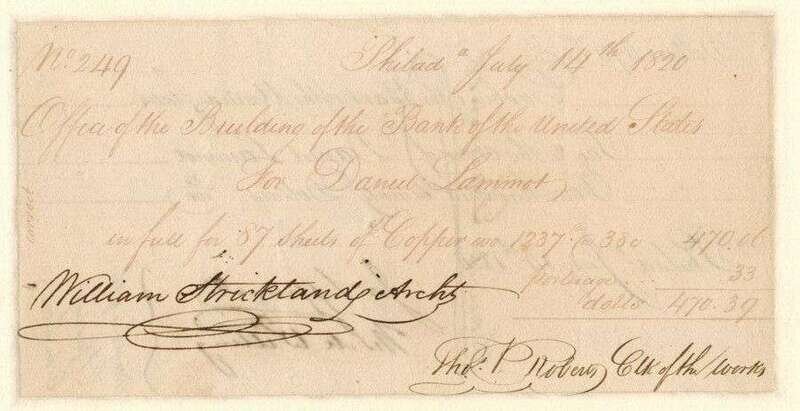 No 249 Philada July 14th 1820
Office of the Building of the Bank of the United States
For Daniel Lammot,
in full for 87 sheets of Copper wo. 1237 38c 470.06
porterage 33
dolls 470.39
William Strickland, Archt
Thos. P Roberts, Clk of the works
correct